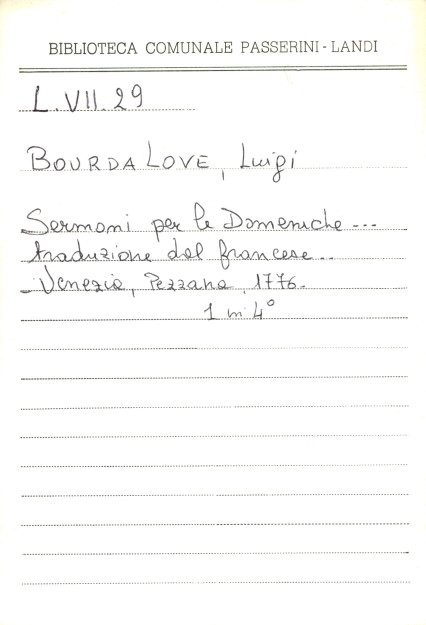 BIBLIOTECA COMUNALE PASSERINI-LANDI
L.VII.29
BOURDALOVE, Luigi
Sermoni per le Domeniche ...
traduzione dal francese..
- Venezia, Pezzana, 1776.
1 in 4°